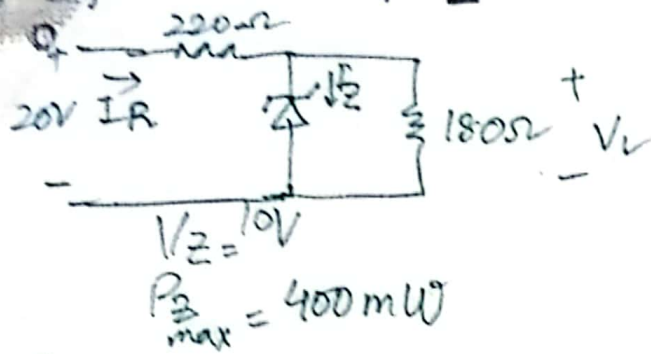 220Ω
+
20V
IR
IZ
180Ω
+
VL
-
-
VZ = 10V
PZ max = 400mW